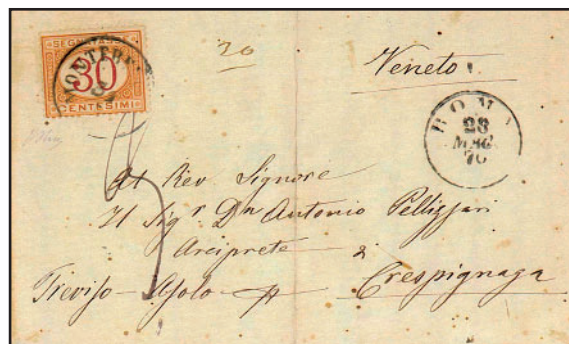 SEGNATASSE
30
CENTESIMI
MONTEBE
30
Veneto
ROMA
28
MAG.
70
Al Rev Signore
Il Sigr Dn Antonio Pellizzari
Arciprete
a
Treviso - Asolo - p
Crespignaga